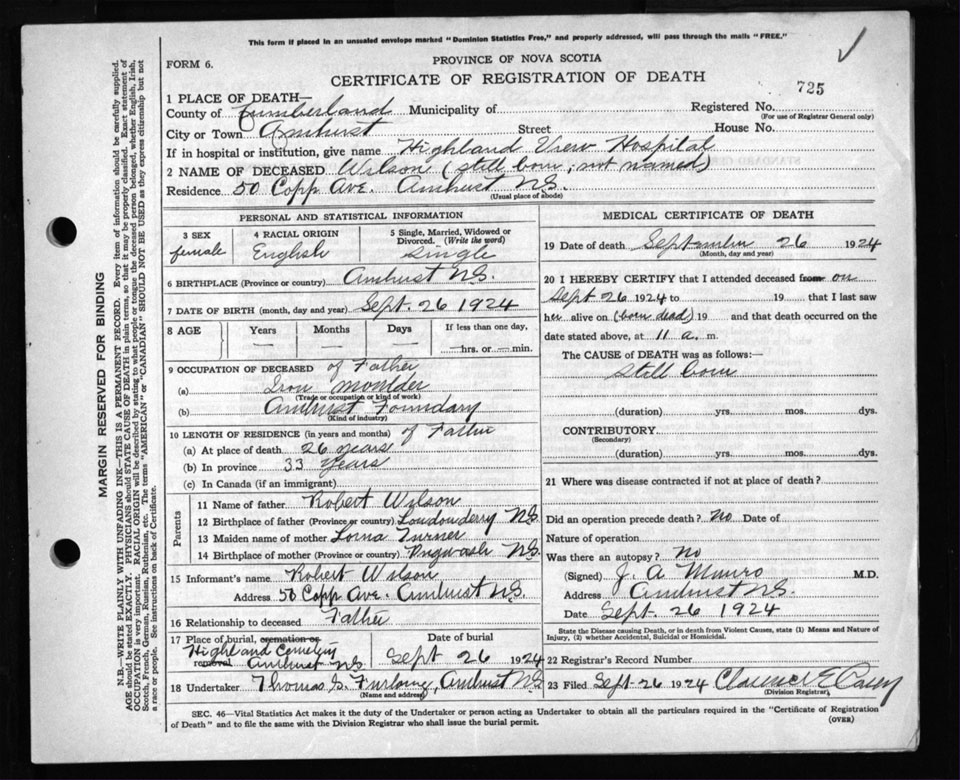 This form if placed in an unsealed envelope marked "Dominion Statistics Free," and properly addressed, will pass through the mails "FREE."
FORM 6.
PROVINCE OF NOVA SCOTIA
CERTIFICATE OF REGISTRATION OF DEATH
725
1 PLACE OF DEATH—
County of Cumberland Municipality of Registered No.
(For use of Registrar General only)
City or Town Amherst Street House No.
If in hospital or institution, give name Highland View Hospital
2 NAME OF DECEASED Wilson (still born, not named)
Residence 50 Copp Ave. Amherst N.S.
(Usual place of abode)
PERSONAL AND STATISTICAL INFORMATION
3 SEX 4 RACIAL ORIGIN 5 Single, Married, Widowed or Divorced. (Write the word)
female English Single
6 BIRTHPLACE (Province or country) Amherst N.S.
7 DATE OF BIRTH (month, day and year) Sept. 26 1924
8 AGE Years Months Days If less than one day,
— — — —hrs. or —min.
9 OCCUPATION OF DECEASED of Father
(a) Iron moulder
(Trade or occupation or kind of work)
(b) Amherst Foundary
(Kind of industry)
10 LENGTH OF RESIDENCE (in years and months) of Father
(a) At place of death 26 years
(b) In province 33 years
(c) In Canada (if an immigrant)
Parents
11 Name of father Robert Wilson
12 Birthplace of father (Province or country) Londonderry N.S.
13 Maiden name of mother Lorna Turner
14 Birthplace of mother (Province or country) Pugwash N.S.
15 Informant's name Robert Wilson
Address 50 Copp Ave. Amherst N.S.
16 Relationship to deceased Father
17 Place of burial, cremation or removal Date of burial
Highland Cemetery
Amherst N.S. Sept 26 1924
18 Undertaker Thomas S. Furlong, Amherst N.S
(Name and address)
MEDICAL CERTIFICATE OF DEATH
19 Date of death September 26 1924
(Month, day and year)
20 I HEREBY CERTIFY that I attended deceased from on
Sept 26 1924 to 19 that I last saw
her alive on (born dead) 19 and that death occurred on the
date stated above, at 11 a. m.
The CAUSE OF DEATH was as follows:—
Still born
(duration) yrs. mos. dys.
CONTRIBUTORY.
(Secondary)
(duration) yrs. mos. dys.
21 Where was disease contracted if not at place of death?
Did an operation precede death? No Date of
Nature of operation
Was there an autopsy? No
(Signed) J. A. Munro M.D.
Address Amherst N.S.
Date Sept. 26 1924
State the Disease causing Death, or in death from Violent Causes, state (1) Means and Nature of
Injury, (2) whether Accidental, Suicidal or Homicidal.
22 Registrar's Record Number
23 Filed Sept-26 1924 Clarence E Casey
(Division Registrar)
SEC. 46—Vital Statistics Act makes it the duty of the Undertaker or person acting as Undertaker to obtain all the particulars required in the "Certificate of Registration
of Death" and to file the same with the Division Registrar who shall issue the burial permit.
(OVER)
MARGIN RESERVED FOR BINDING
N.B.—WRITE PLAINLY WITH UNFADING INK—THIS IS A PERMANENT RECORD. Every item of information should be carefully supplied.
AGE should be stated EXACTLY. PHYSICIANS should STATE CAUSE OF DEATH in plain terms, so that it may be properly classified. Exact statement of
OCCUPATION is very important. RACIAL ORIGIN will be described by stating to what people or tongue the deceased person belonged, whether English, Irish,
Scotch, French, German, Russian, Ruthenian, etc. The terms "AMERICAN" or "CANADIAN" SHOULD NOT BE USED as they express citizenship but not
a race or people. See instructions on back of Certificate.